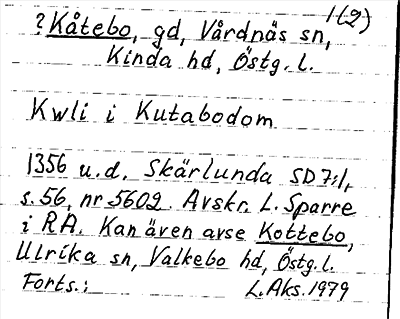 1(2)
? Kåtebo, gd, Vårdnäs sn,
Kinda hd, Östg. l.
Kwli i Kutabodom
1356 u.d. Skärlunda SD 7:1,
s. 56, nr 5602. Avskr. L. Sparre
i RA. Kan även avse Kottebo,
Ulrika sn, Valkebo hd, Östg. l.
Forts.: L. Aks. 1979